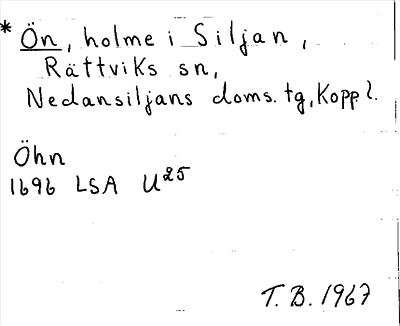 * Ön, holme i Siljan,
Rättviks sn,
Nedansiljans doms. tg, Kopp l.
Öhn
1696 LSA U25
T. B. 1967